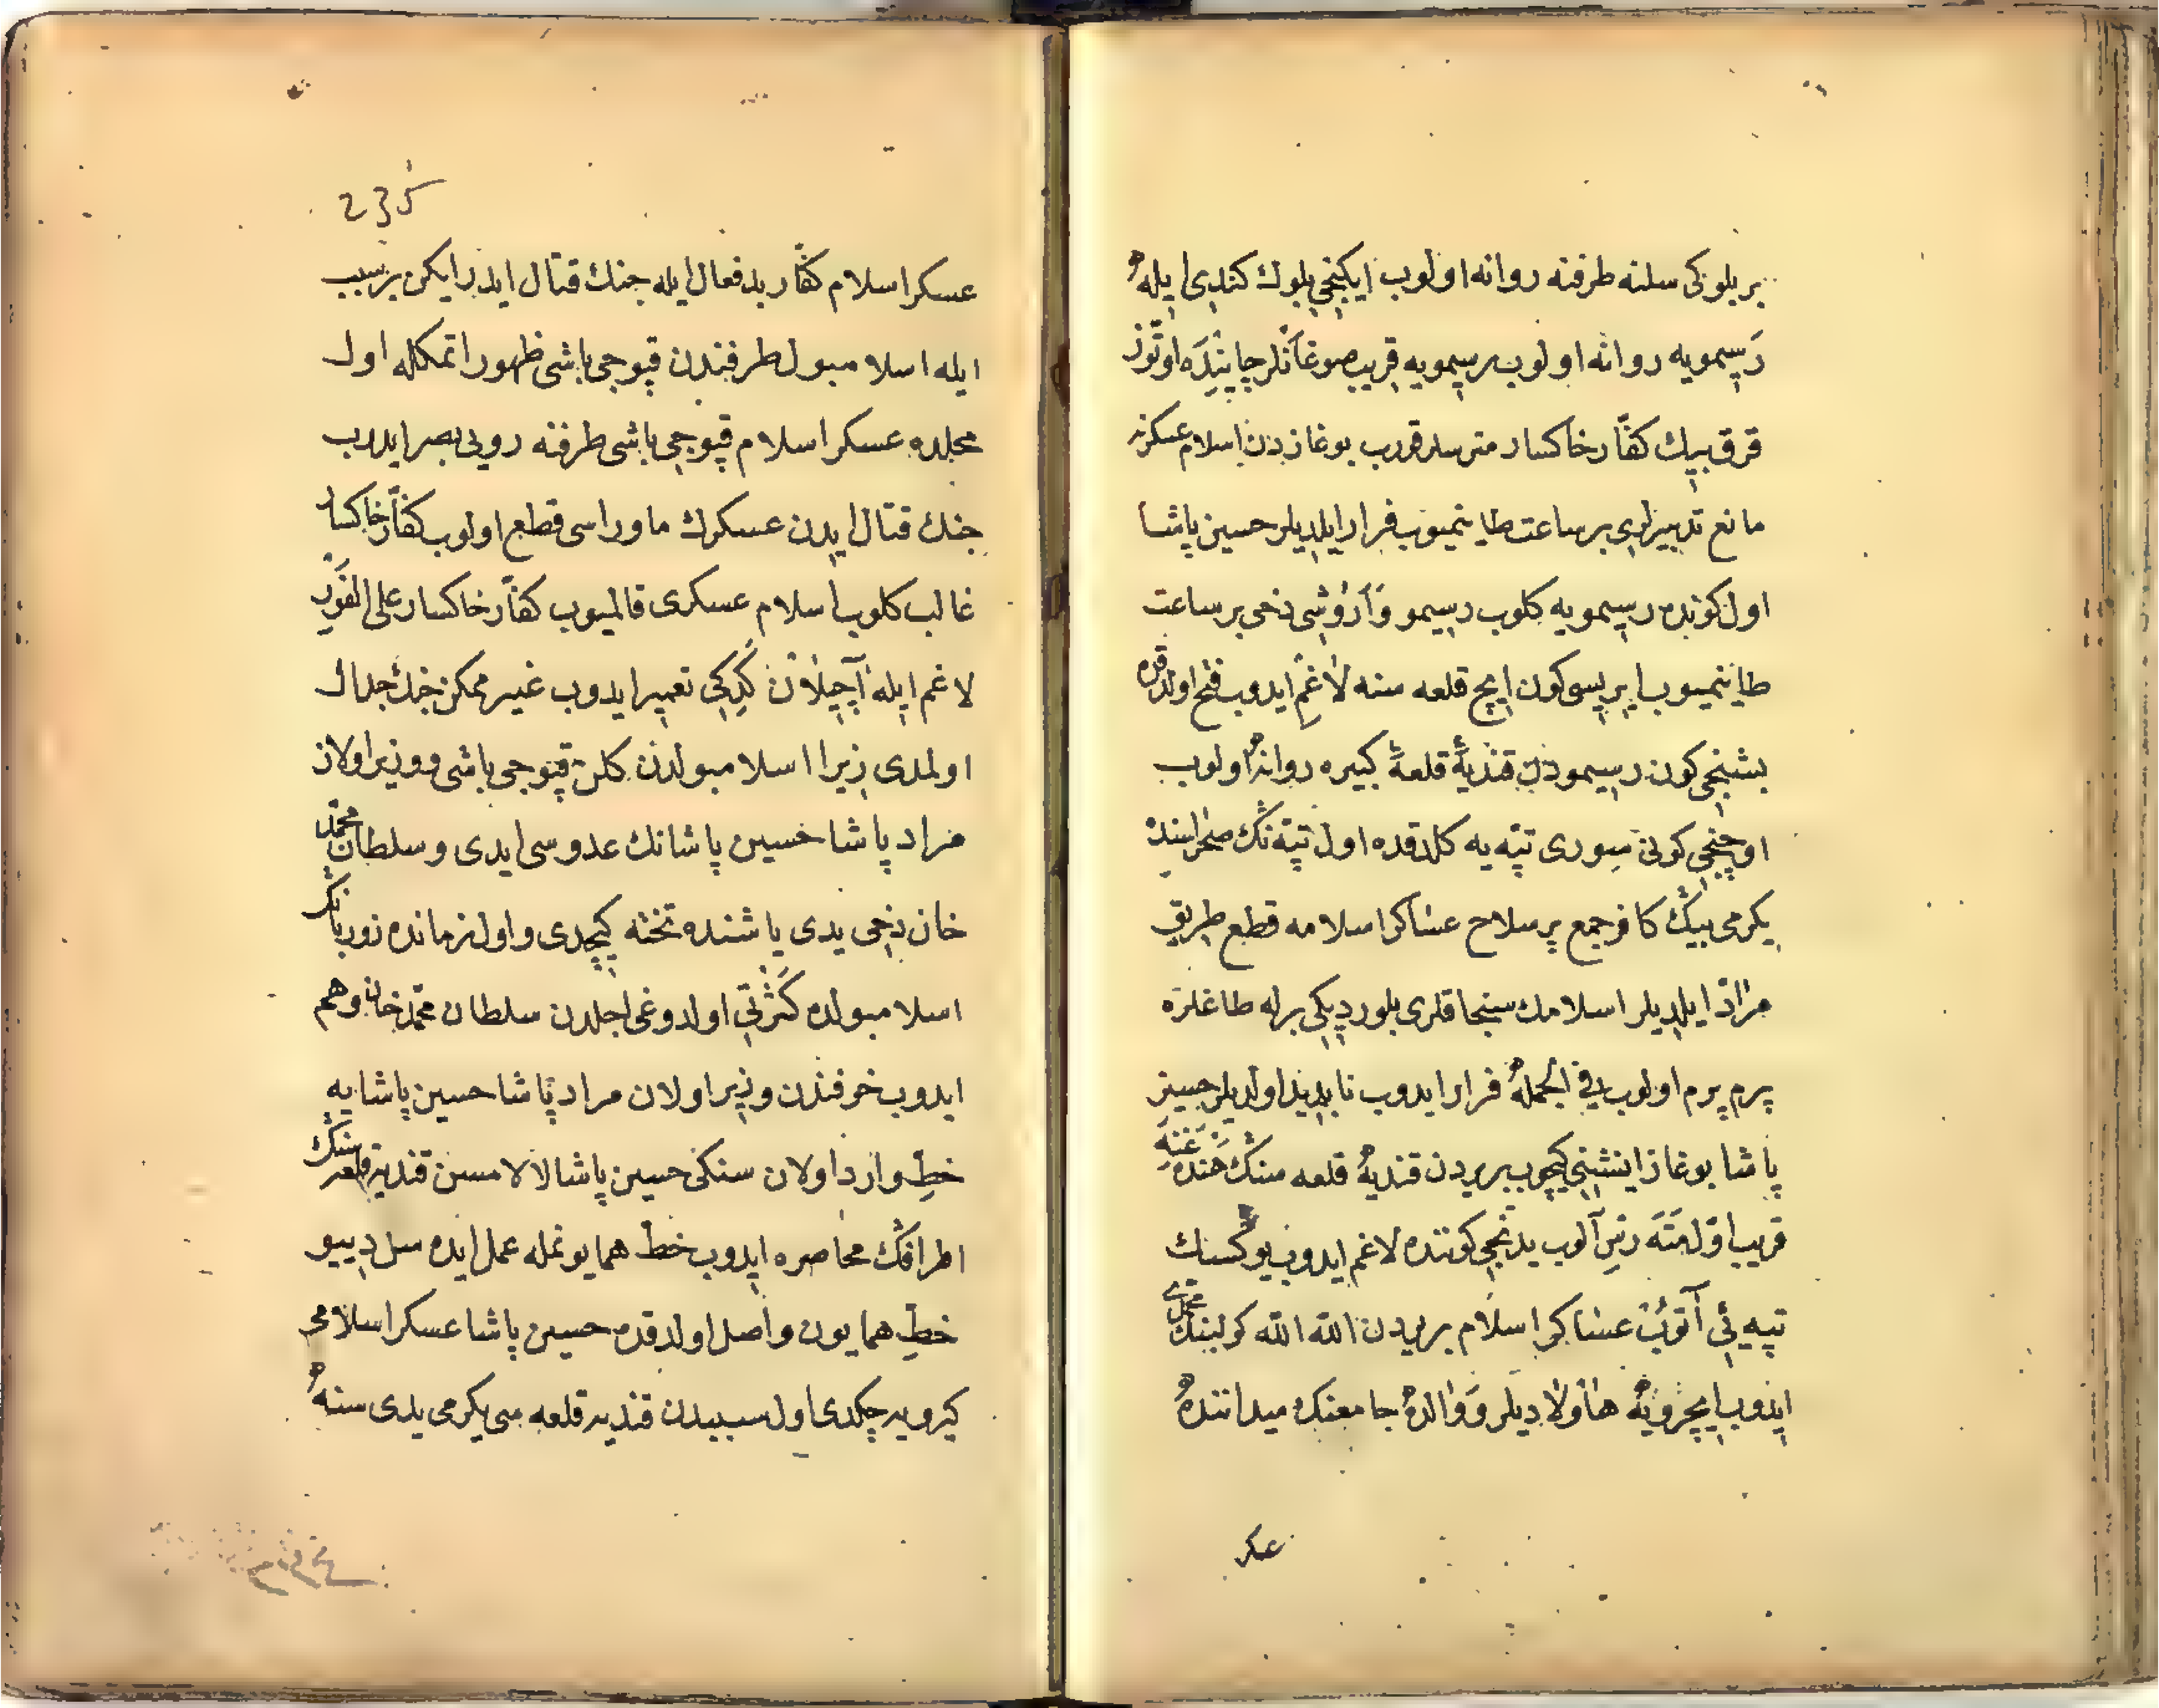 بر بلوكى سلنه طرفنه روانه اولوب ايكنجى بلوك كندى ايله
رسمويه روانه اولوب رسمويه قريب صوغانلر چاينده اوتوز
قرق بيك كفار خاكسار مترسلر قورب بوغازدن اسلام عسكرنه
مانع تدبيرلرى بر ساعت طاينميوب فرار ايلديلر حسين پاشا
اول كونده رسمويه كلوب رسيمو وآروشى دخى بر ساعت
طاينميوب ايريسى كون ايچ قلعه سنه لاغم ايدوب فتح اولدقده
بشنجى كون رسيمودن قنديه قلعۀ كبيره روانه اولوب
اوچنجى كونى سورى تپه يه كلدقده اول تپه نك صحراسنده
يكرمى بيك كافر جمع پر سلاح عساكر اسلامه قطع طريق
مراد ايلديلر اسلامك سنجاقلرى بلورديكى برله طاغلره
پرم پرم اولوب فى الجمله فرار ايدوب نابديد اولديلر حسين
پاشا بوغاز اينشنى كچوب بريردن قنديه قلعه سنك خندغنه
قريب اولمته رتس آلوب يدنجى كونده لاغم ايدوب يوكسك
تپه يى آتوب عساكر اسلام بريردن الله الله كولبنك محمدى
ايدوب ايچرويه هاولاديلر ووالده جامعنك ميداننده
عسكر
235
عسكر اسلام كفار بدفعال ايله جنك قتال ايدر ايكن بر سبب
ايله اسلامبول طرفندن قپوجى باشى ظهور اتمكله اول
محلده عسكر اسلام قپوجى باشى طرفنه روبى بصر ايدرب
جنك قتال ايدن عسكرك ماوراسى قطع اولوب كفار خاكسار
غالب كلوب اسلام عسكرى قالميوب كفار خاكسار على الفور
لاغم ايله آچيلان كدكى تعمير ايدوب غير ممكن جنك جدال
اولمدى زيرا اسلامبولدن كلن قپوجى باشى ووزير اولان
مراد پاشا حسين پاشانك عدوسى ايدى وسلطان محمد
خان دخى يدى ياشنده تخته كچدى واول زمانده زوربانك
اسلامبولده كثرتى اولدوغى اجلدن سلطان محمد خان وهم
ايدوب خوفندن وزير اولان مراد پاشا حسين پاشايه
خط وارد اولان سنكى حسين پاشا لالامسن قنديه قلعه سنك
اطرافك محاصره ايدوب خط همايونمله عمل ايده سن دييو
خط همايون واصل اولدقده حسين پاشا عسكر اسلامى
كيرويه چكدى اول سببدن قنديه قلعه سى يكرمى يدى سنه